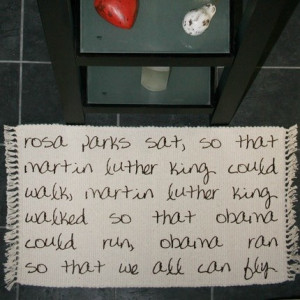 rosa parks sat, so that
martin luther king could
walk, martin luther king
walked so that obama
could run, obama ran
so that we all can fly